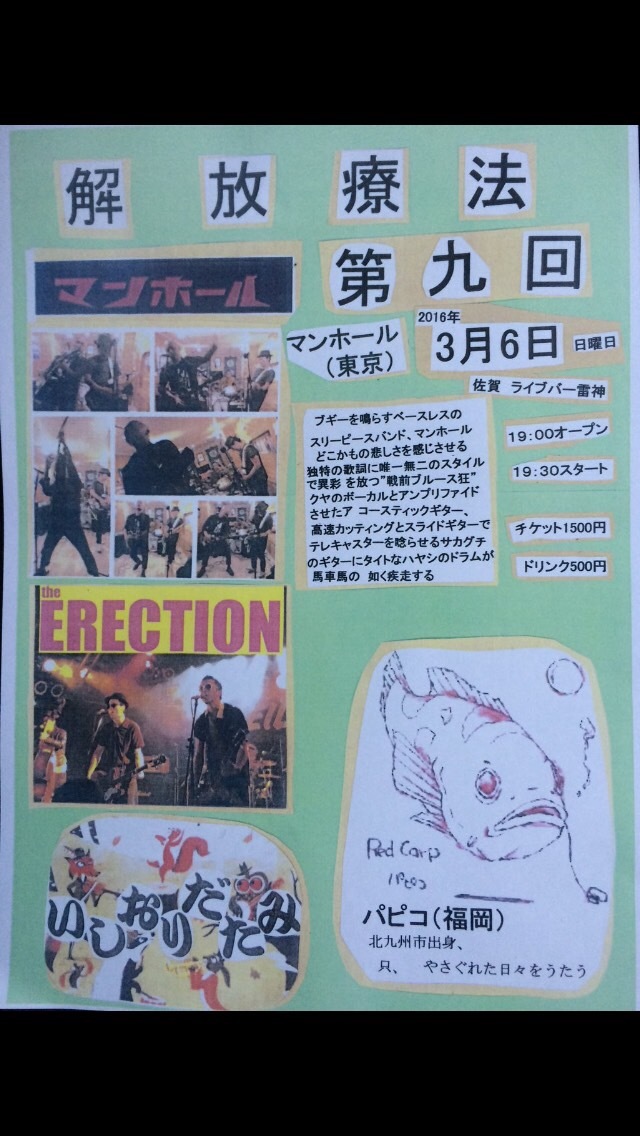 解放療法
第九回
マンホール
マンホール
（東京）
2016年
3月6日 日曜日
佐賀 ライブバー雷神
ブギーを鳴らすベースレスの
スリーピースバンド、マンホール
どこかもの悲しさを感じさせる
独特の歌詞に唯一無二のスタイル
で異彩 を放つ”戦前ブルース狂”
クヤのボーカルとアンプリファイド
させたア コースティックギター、
高速カッティングとスライドギターで
テレキャスターを唸らせるサカグチ
のギターにタイトなハヤシのドラムが
馬車馬の 如く疾走する
19:00オープン
19:30スタート
チケット1500円
ドリンク500円
the
ERECTION
いしおりだたみ
Red Carp
パピコ
パピコ（福岡）
北九州市出身、
只、 やさぐれた日々をうたう